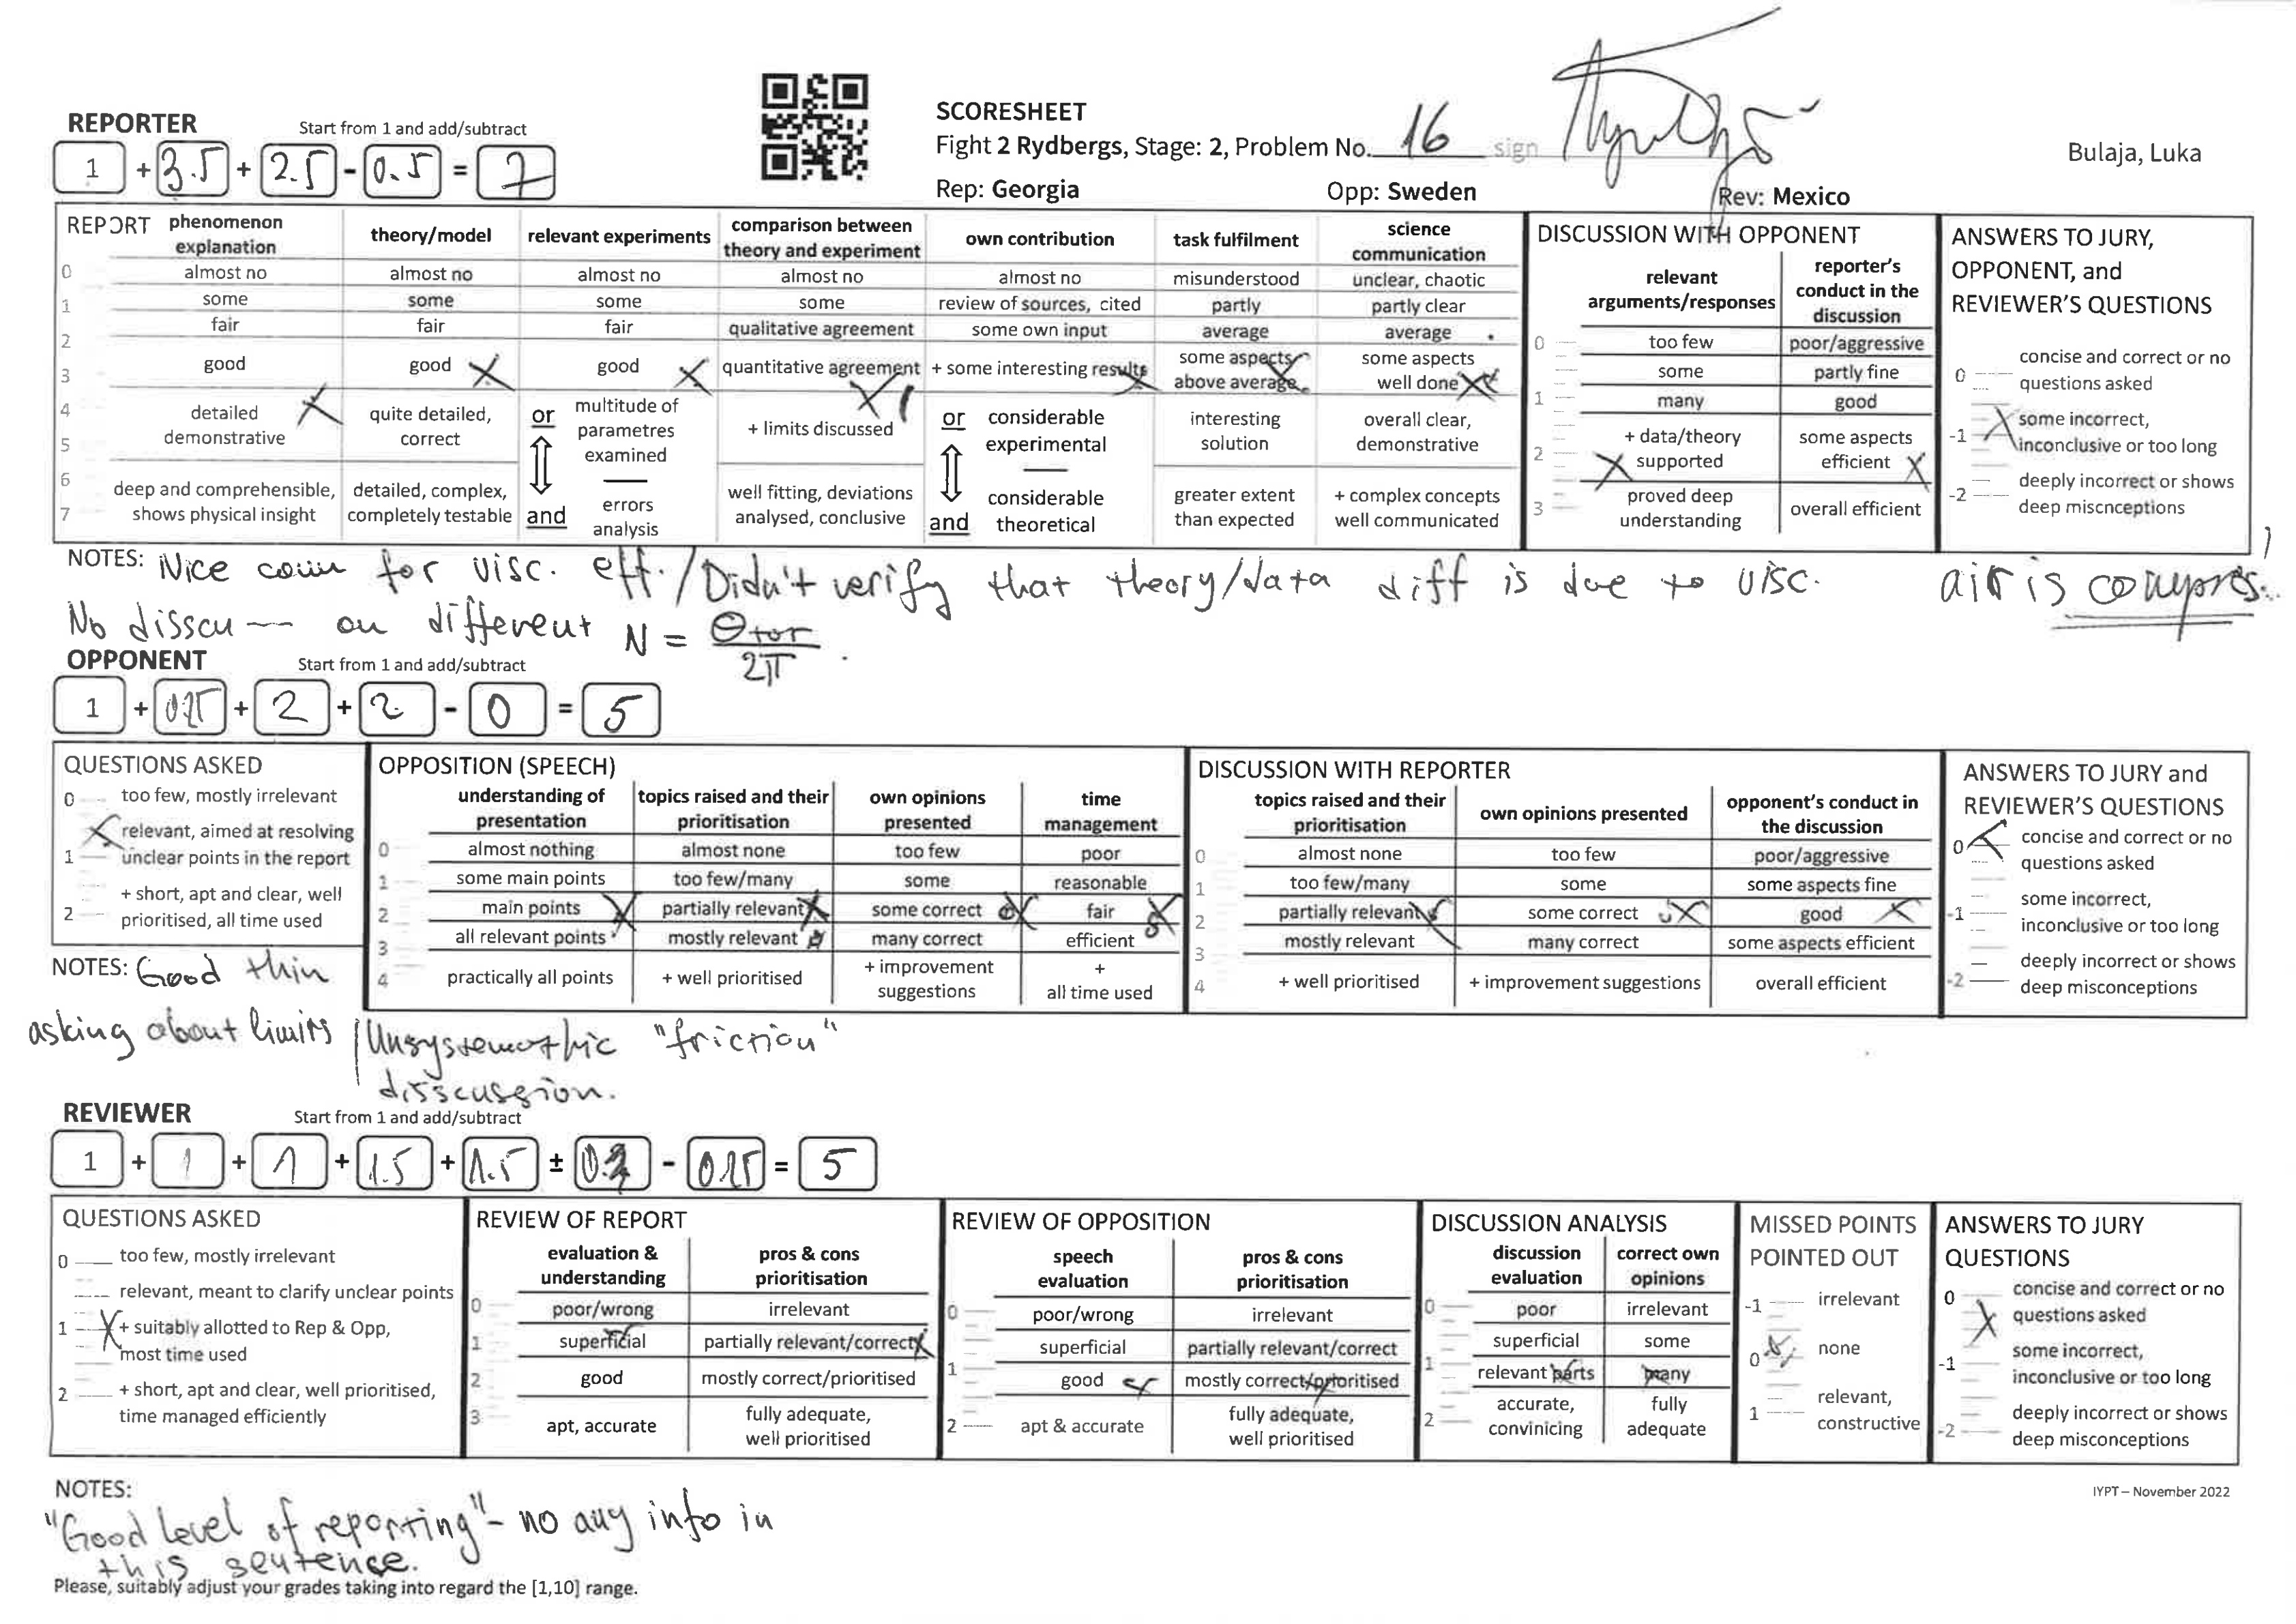 SCORESHEET
Fight 2 Rydbergs, Stage: 2, Problem No. 16 sign
Bulaja, Luka
Rep: Georgia Opp: Sweden Rev: Mexico
REPORTER Start from 1 and add/subtract
1 + 3.5 + 2.5 - 0.5 = 7
REPORT
phenomenon explanation
almost no
some
fair
good
detailed demonstrative
deep and comprehensible, shows physical insight
theory/model
almost no
some
fair
good
quite detailed, correct
detailed, complex, completely testable
relevant experiments
almost no
some
fair
good
or
multitude of parametres examined
and
errors analysis
comparison between theory and experiment
almost no
some
qualitative agreement
quantitative agreement
+ limits discussed
well fitting, deviations analysed, conclusive
own contribution
almost no
review of sources, cited
some own input
+ some interesting results
or
considerable experimental
and
considerable theoretical
task fulfilment
misunderstood
partly
average
some aspects above average
interesting solution
greater extent than expected
science communication
unclear, chaotic
partly clear
average
some aspects well done
overall clear, demonstrative
+ complex concepts well communicated
0
1
2
3
4
5
6
7
DISCUSSION WITH OPPONENT
relevant arguments/responses
too few
some
many
+ data/theory supported
proved deep understanding
reporter's conduct in the discussion
poor/aggressive
partly fine
good
some aspects efficient
overall efficient
0
1
2
3
ANSWERS TO JURY, OPPONENT, and REVIEWER'S QUESTIONS
0 concise and correct or no questions asked
-1 some incorrect, inconclusive or too long
-2 deeply incorrect or shows deep miscnceptions
NOTES: Nice for visc. eff. / Didn't verify that theory/data diff is due to visc. air is compres.
No on different N = Θtor / 2π .
OPPONENT Start from 1 and add/subtract
1 + + 2 + 2 - 0 = 5
QUESTIONS ASKED
0 too few, mostly irrelevant
1 relevant, aimed at resolving unclear points in the report
2 + short, apt and clear, well prioritised, all time used
OPPOSITION (SPEECH)
understanding of presentation
almost nothing
some main points
main points
all relevant points
practically all points
topics raised and their prioritisation
almost none
too few/many
partially relevant
mostly relevant
+ well prioritised
own opinions presented
too few
some
some correct
many correct
+ improvement suggestions
time management
poor
reasonable
fair
efficient
+ all time used
0
1
2
3
4
DISCUSSION WITH REPORTER
topics raised and their prioritisation
almost none
too few/many
partially relevant
mostly relevant
+ well prioritised
own opinions presented
too few
some
some correct
many correct
+ improvement suggestions
opponent's conduct in the discussion
poor/aggressive
some aspects fine
good
some aspects efficient
overall efficient
0
1
2
3
4
ANSWERS TO JURY and REVIEWER'S QUESTIONS
0 concise and correct or no questions asked
-1 some incorrect, inconclusive or too long
-2 deeply incorrect or shows deep misconceptions
NOTES: Good thin
asking about limits / "friction"
disscussion.
REVIEWER Start from 1 and add/subtract
1 + 1 + 1 + 1.5 + 1.5 ± - = 5
QUESTIONS ASKED
0 too few, mostly irrelevant
relevant, meant to clarify unclear points
1 + suitably allotted to Rep & Opp, most time used
2 + short, apt and clear, well prioritised, time managed efficiently
REVIEW OF REPORT
evaluation & understanding
poor/wrong
superficial
good
apt, accurate
pros & cons prioritisation
irrelevant
partially relevant/correct
mostly correct/prioritised
fully adequate, well prioritised
0
1
2
3
REVIEW OF OPPOSITION
speech evaluation
poor/wrong
superficial
good
apt & accurate
pros & cons prioritisation
irrelevant
partially relevant/correct
mostly correct/prioritised
fully adequate, well prioritised
0
1
2
DISCUSSION ANALYSIS
discussion evaluation
poor
superficial
relevant parts
accurate, convinicing
correct own opinions
irrelevant
some
many
fully adequate
0
1
2
MISSED POINTS POINTED OUT
-1 irrelevant
0 none
1 relevant, constructive
ANSWERS TO JURY QUESTIONS
0 concise and correct or no questions asked
-1 some incorrect, inconclusive or too long
-2 deeply incorrect or shows deep misconceptions
NOTES:
"Good level of reporting" - no any info in
this sentence.
Please, suitably adjust your grades taking into regard the [1,10] range.
IYPT – November 2022